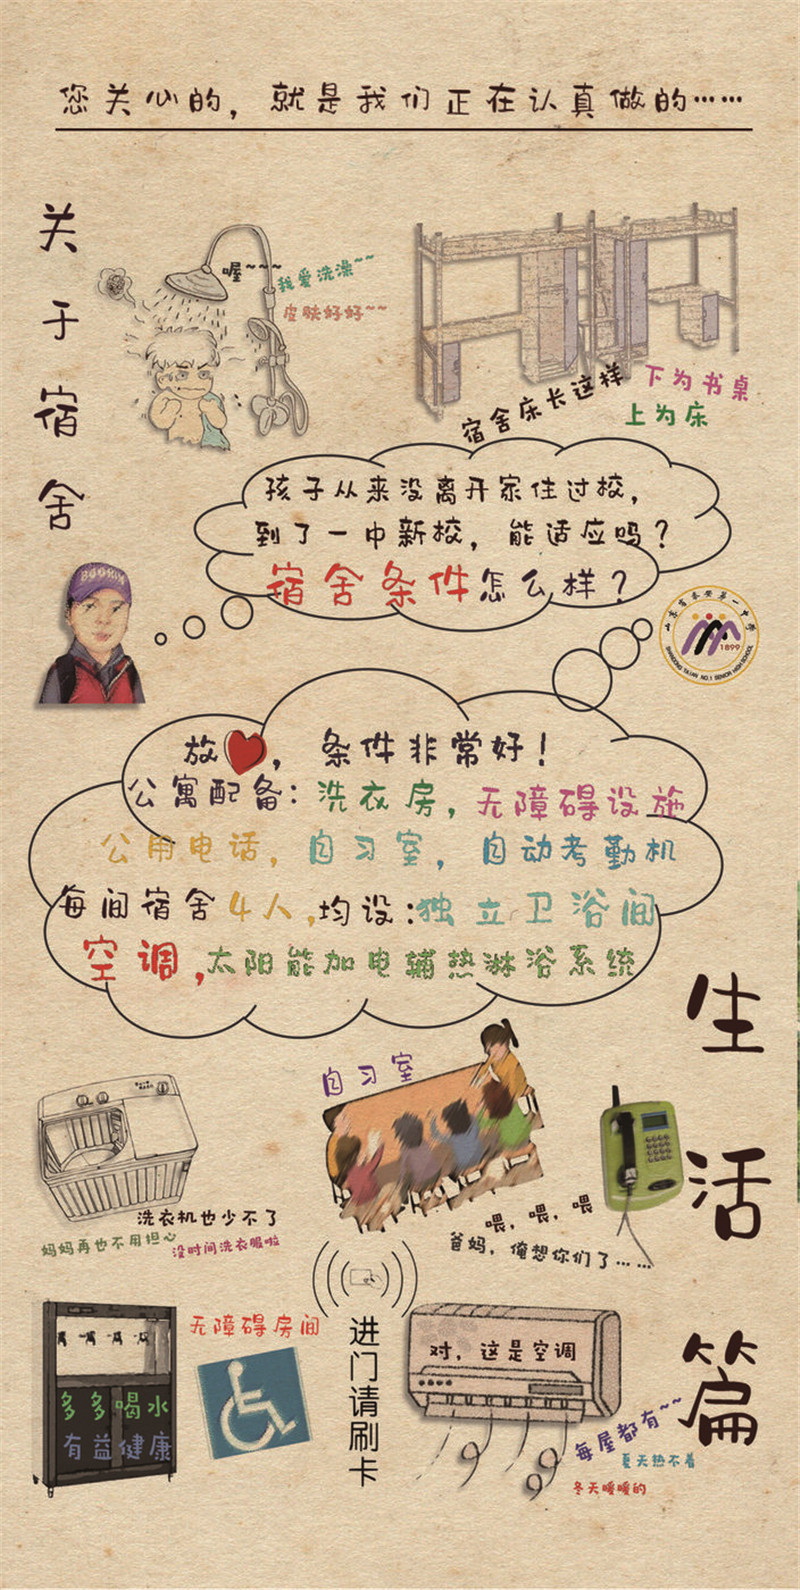 您关心的，就是我们正在认真做的……
关于宿舍
喔~~~
我爱洗澡~~
皮肤好好~~
宿舍床长这样
下为书桌
上为床
孩子从来没离开家住过校，
到了一中新校，能适应吗？
宿舍条件怎么样？
山东省泰安第一中学
1899
SHANDONG TAI'AN NO.1 SENIOR HIGH SCHOOL
放，条件非常好！
公寓配备：洗衣房，无障碍设施
公用电话，自习室，自动考勤机
每间宿舍4人，均设：独立卫浴间
空调，太阳能加电辅热淋浴系统
生活篇
自习室
洗衣机也少不了
妈妈再也不用担心
没时间洗衣服啦
喂，喂，喂
爸妈，俺想你们了……
无障碍房间
进门请刷卡
对，这是空调
多多喝水
有益健康
每屋都有~~
夏天热不着
冬天暖暖的